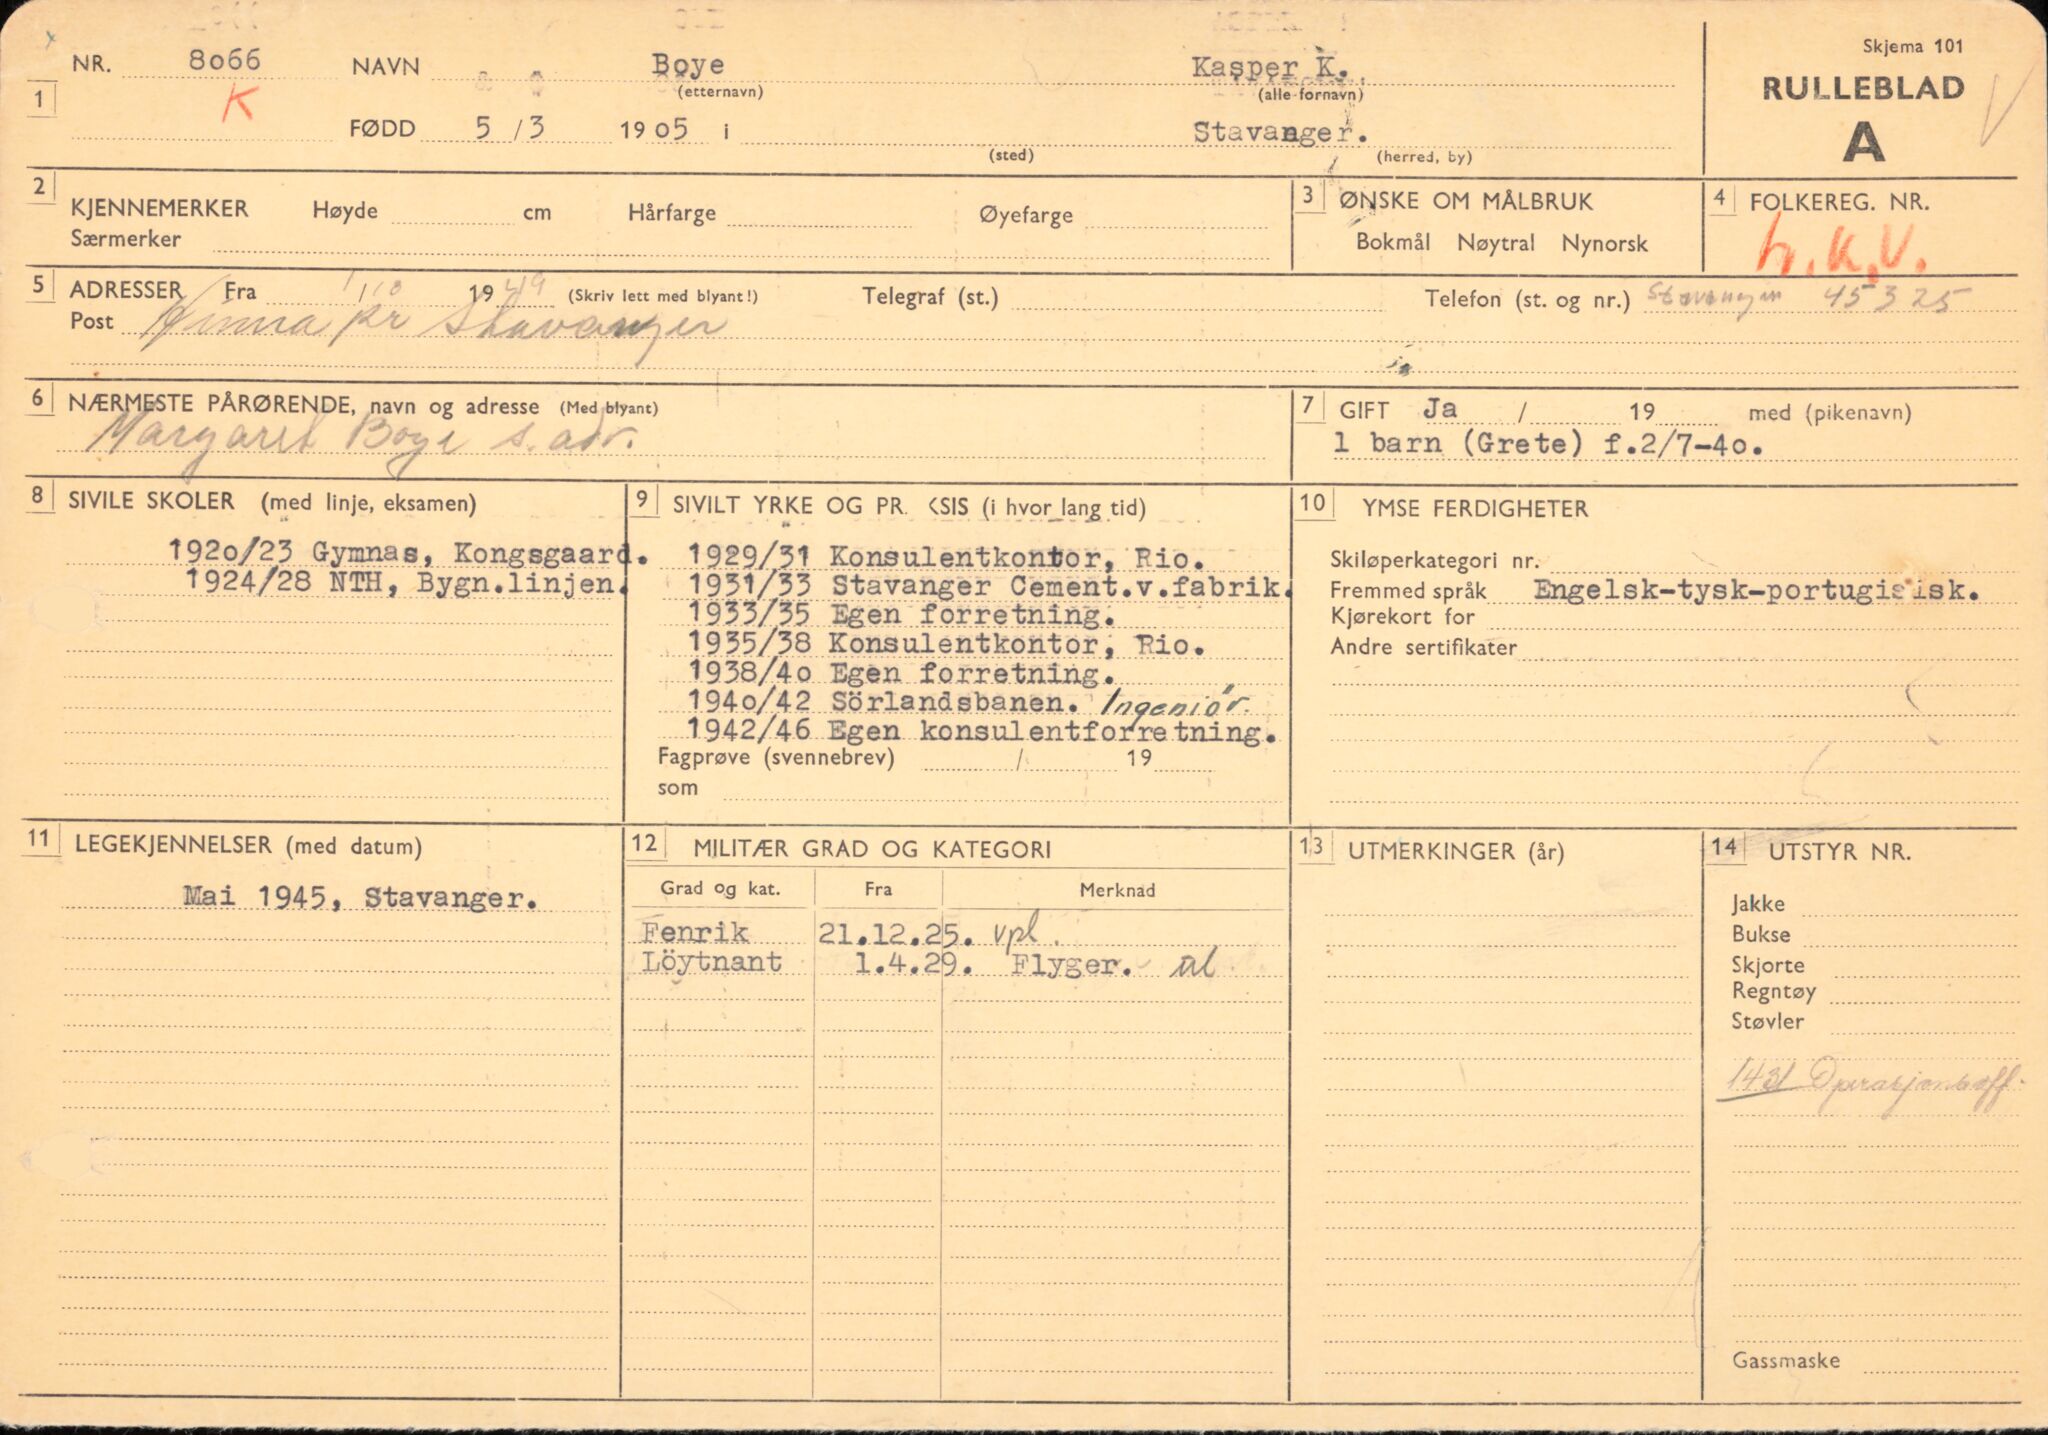 Skjema 101
NR. 8066 NAVN Boye Kasper K.
(etternavn) (alle fornavn)
RULLEBLAD
1 K
FØDD 5/3 1905 i Stavanger.
(sted) (herred, by)
A
2 KJENNEMERKER Høyde cm Hårfarge Øyefarge
Særmerker
3 ØNSKE OM MÅLBRUK
Bokmål Nøytral Nynorsk
4 FOLKEREG. NR.
5 ADRESSER Fra 1/10 1949 (Skriv lett med blyant!) Telegraf (st.) Telefon (st. og nr.) Stavanger 45325
Post Hinna pr Stavanger
6 NÆRMESTE PÅRØRENDE, navn og adresse (Med blyant)
Margaret Boye s. adr.
7 GIFT Ja / 19 med (pikenavn)
1 barn (Grete) f.2/7-40.
8 SIVILE SKOLER (med linje, eksamen)
1920/23 Gymnas, Kongsgaard.
1924/28 NTH, Bygn.linjen.
9 SIVILT YRKE OG PR KSIS (i hvor lang tid)
1929/31 Konsulentkontor, Rio.
1931/33 Stavanger Cement.v.fabrik.
1933/35 Egen forretning.
1935/38 Konsulentkontor, Rio.
1938/40 Egen forretning.
1940/42 Sörlandsbanen. Ingeniör.
1942/46 Egen konsulentforretning.
Fagprøve (svennebrev) / 19
som
10 YMSE FERDIGHETER
Skiløperkategori nr.
Fremmed språk Engelsk-tysk-portugisisk.
Kjørekort for
Andre sertifikater
11 LEGEKJENNELSER (med datum)
Mai 1945, Stavanger.
12 MILITÆR GRAD OG KATEGORI
Grad og kat. Fra Merknad
Fenrik 21.12.25. vpl.
Löytnant 1.4.29. Flyger. al
13 UTMERKINGER (år)
14 UTSTYR NR.
Jakke
Bukse
Skjorte
Regntøy
Støvler
1431 Operasjonsoff.
Gassmaske